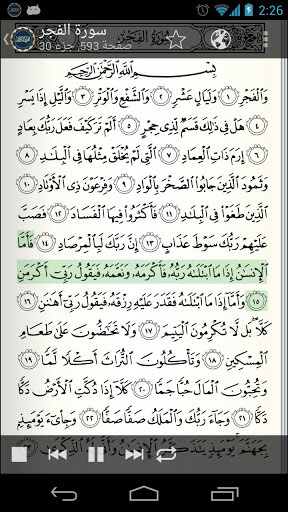 2:26
سورة الفجر
صفحة 593, جزء 30
سُورَةُ الفَجْرِ
بِسْمِ ٱللَّهِ ٱلرَّحْمَٰنِ ٱلرَّحِيمِ
وَٱلْفَجْرِ ١ وَلَيَالٍ عَشْرٍ ٢ وَٱلشَّفْعِ وَٱلْوَتْرِ ٣ وَٱلَّيْلِ إِذَا يَسْرِ
٤ هَلْ فِى ذَٰلِكَ قَسَمٌ لِّذِى حِجْرٍ ٥ أَلَمْ تَرَ كَيْفَ فَعَلَ رَبُّكَ بِعَادٍ
٦ إِرَمَ ذَاتِ ٱلْعِمَادِ ٧ ٱلَّتِى لَمْ يُخْلَقْ مِثْلُهَا فِى ٱلْبِلَٰدِ ٨
وَثَمُودَ ٱلَّذِينَ جَابُوا۟ ٱلصَّخْرَ بِٱلْوَادِ ٩ وَفِرْعَوْنَ ذِى ٱلْأَوْتَادِ ١٠
ٱلَّذِينَ طَغَوْا۟ فِى ٱلْبِلَٰدِ ١١ فَأَكْثَرُوا۟ فِيهَا ٱلْفَسَادَ ١٢ فَصَبَّ
عَلَيْهِمْ رَبُّكَ سَوْطَ عَذَابٍ ١٣ إِنَّ رَبَّكَ لَبِٱلْمِرْصَادِ ١٤ فَأَمَّا
ٱلْإِنسَٰنُ إِذَا مَا ٱبْتَلَىٰهُ رَبُّهُۥ فَأَكْرَمَهُۥ وَنَعَّمَهُۥ فَيَقُولُ رَبِّىٓ أَكْرَمَنِ
١٥ وَأَمَّآ إِذَا مَا ٱبْتَلَىٰهُ فَقَدَرَ عَلَيْهِ رِزْقَهُۥ فَيَقُولُ رَبِّىٓ أَهَٰنَنِ ١٦
كَلَّا ۖ بَل لَّا تُكْرِمُونَ ٱلْيَتِيمَ ١٧ وَلَا تَحَٰٓضُّونَ عَلَىٰ طَعَامِ
ٱلْمِسْكِينِ ١٨ وَتَأْكُلُونَ ٱلتُّرَاثَ أَكْلًا لَّمًّا ١٩
وَتُحِبُّونَ ٱلْمَالَ حُبًّا جَمًّا ٢٠ كَلَّآ إِذَا دُكَّتِ ٱلْأَرْضُ دَكًّا
دَكًّا ٢١ وَجَآءَ رَبُّكَ وَٱلْمَلَكُ صَفًّا صَفًّا ٢٢ وَجِا۟ىٓءَ يَوْمَئِذٍۭ
بِجَهَنَّمَ ۚ يَوْمَئِذٍ يَتَذَكَّرُ ٱلْإِنسَٰنُ وَأَنَّىٰ لَهُ ٱلذِّكْرَىٰ ٢٣